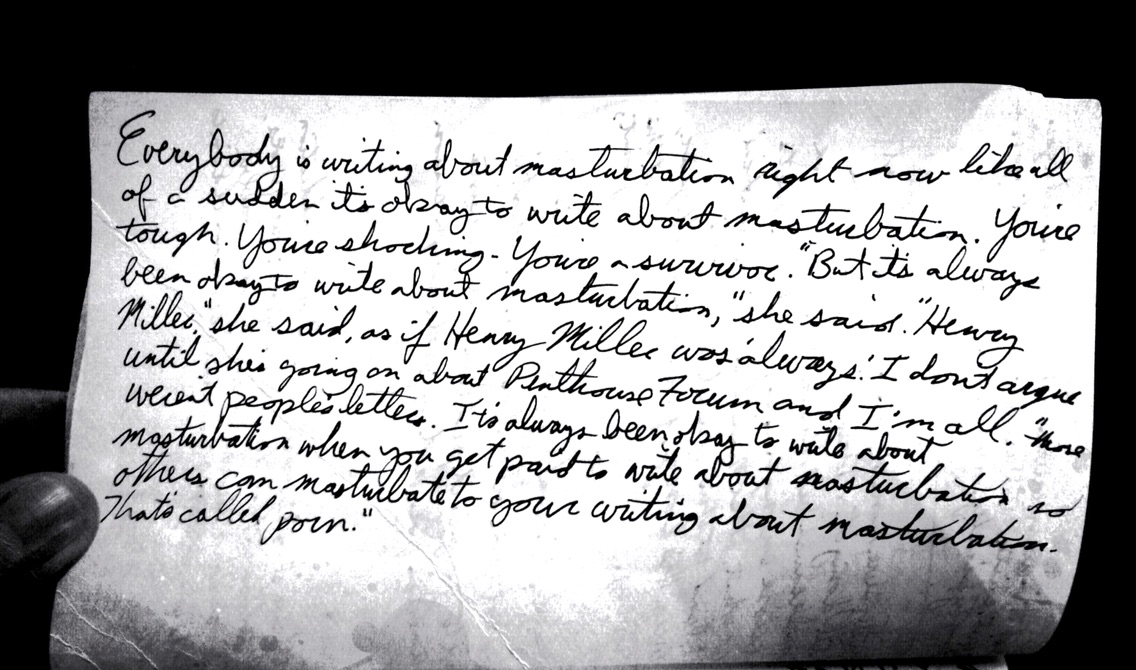 Everybody is writing about masturbation right now like all
of a sudden it's okay to write about masturbation. You're
tough. You're shocking. You're a survivor. "But it's always
been okay to write about masturbation," she said. "Henry
Miller," she said, as if Henry Miller was 'always.' I don't argue
until she's going on about Penthouse Forum and I'm all, "those
weren't people's letters. It's always been okay to write about
masturbation when you get paid to write about masturbation so
others can masturbate to your writing about masturbation.
That's called porn."